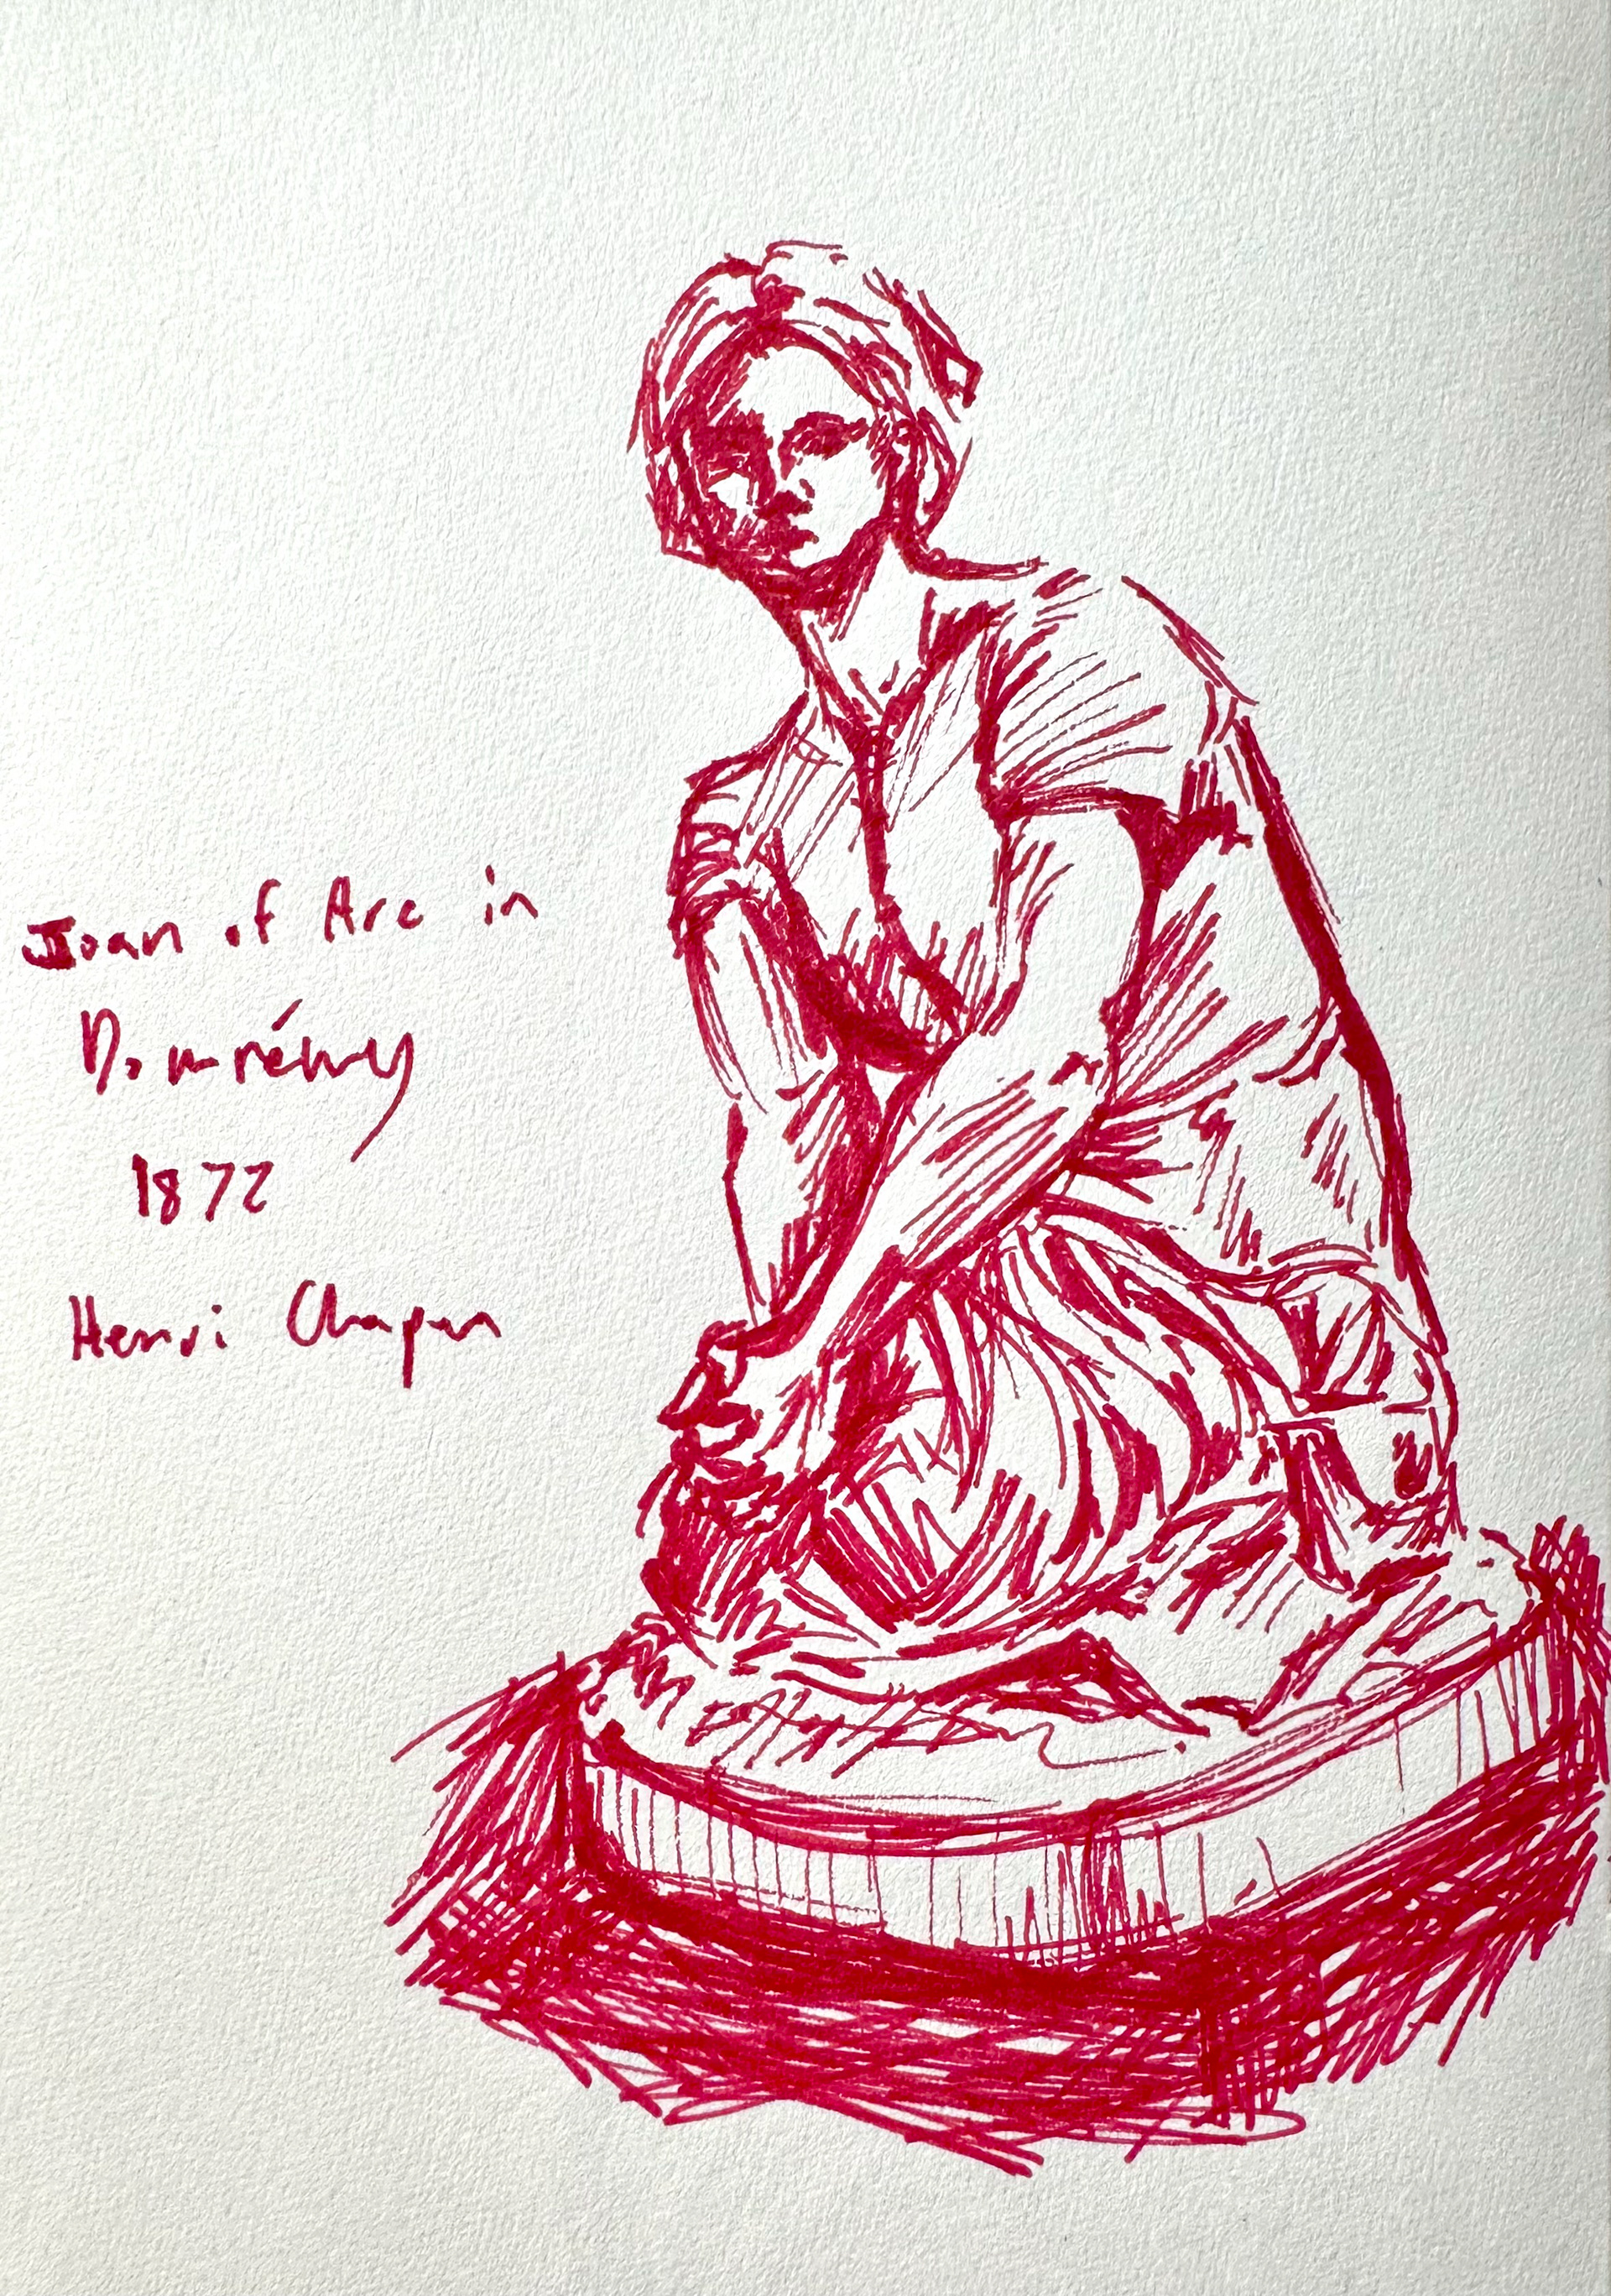 Joan of Arc in
Domrémy
1872
Henri Chapu